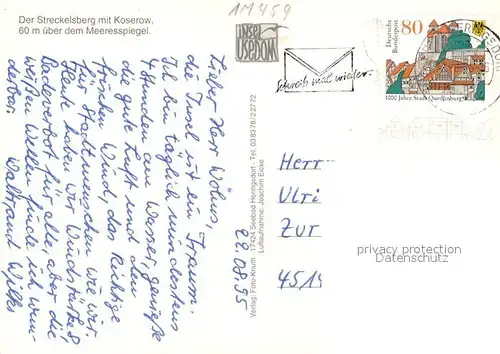 Der Streckelsberg mit Koserow,
60 m über dem Meeresspiegel.
1M459
INSEL
USEDOM
Schreib mal wieder.
Deutsche
Bundespost
80
1000 Jahre Stadt Quedlinburg
22.08.95
Lieber Herr Wölms,
die Insel ist ein Traum.
Ich bin täglich mindestens
4 Stunden am Wasser, genieße
die gute Luft und den
frischen Wind, das Richtige
für Stadtmenschen wie wir.
Heute haben wir Windstärke 8,
Badeverbot für alle, aber die
weißen Wellen finde ich wun-
derbar.
Waltraud Wilks
Verlag: Foto-Knuth · 17424 Seebad Heringsdorf · Tel. 038378/22772
Luftaufnahme: Joachim Eicke
Herr
Ulri
Zur
4519
privacy protection
Datenschutz